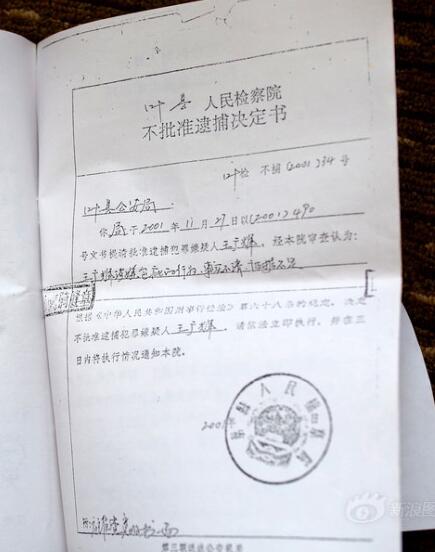 叶县 人民检察院
不批准逮捕决定书
叶检 不捕(2001)34号
叶县公安局：
你局于2001年11月27日以(2001)490
号文书提请批准逮捕犯罪嫌疑人王广辉，经本院审查认为：
事实不清 证据不足
根据《中华人民共和国刑事诉讼法》第六十八条的规定，决定
不批准逮捕犯罪嫌疑人王广辉。请依法立即执行，并在三
日内将执行情况通知本院。
叶县人民检察院
2001年
第三联送达公安机关
新浪